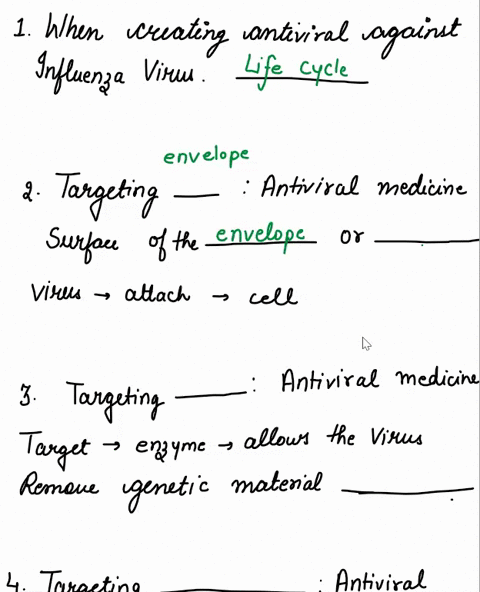 1. When creating antiviral against
Influenza Virus. Life cycle
envelope
2. Targeting ___ : Antiviral medicine
Surface of the envelope or ___
Virus → attach → cell
3. Targeting ___ : Antiviral medicine
Target → enzyme → allows the Virus
Remove genetic material ___
4. Targeting ___ : Antiviral